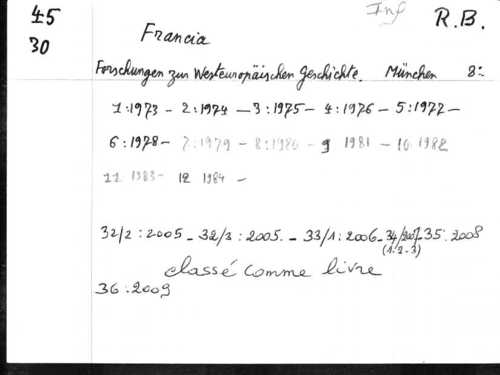 45
30
Inf
R.B.
Francia
Forschungen zur Westeuropäischen Geschichte. München 8:
1:1973 - 2:1974 - 3:1975 - 4:1976 - 5:1977 -
6:1978 - 7:1979 - 8:1980 - 9 1981 - 10 1982
11 1983 - 12 1984 -
32/2:2005 - 32/3:2005. - 33/1:2006 - 34/2007 - 35.2008
(1.2.3)
classé comme livre
36:2009